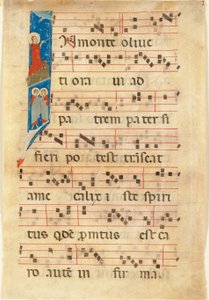 IN monte oliue
ti ora uit ad
pa trem pa ter si
fieri po test transeat
a me calix i ste spiri
tus qdẽ promtus est ca
ro autẽ in fir ma